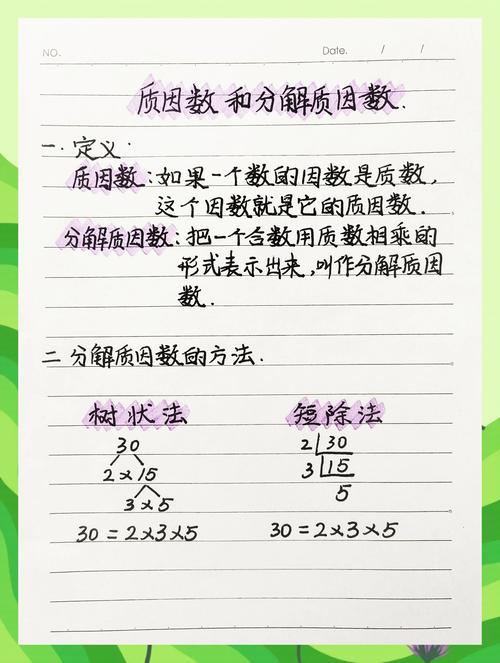 NO.
Date. / /
质因数和分解质因数.
一.定义.
质因数:如果一个数的因数是质数,
这个因数就是它的质因数.
分解质因数:把一个合数用质数相乘的
形式表示出来,叫作分解质因
数.
二 分解质因数的方法.
树状法 短除法
30 2 30
2×15 3 15
3×5 5
30=2×3×5 30=2×3×5